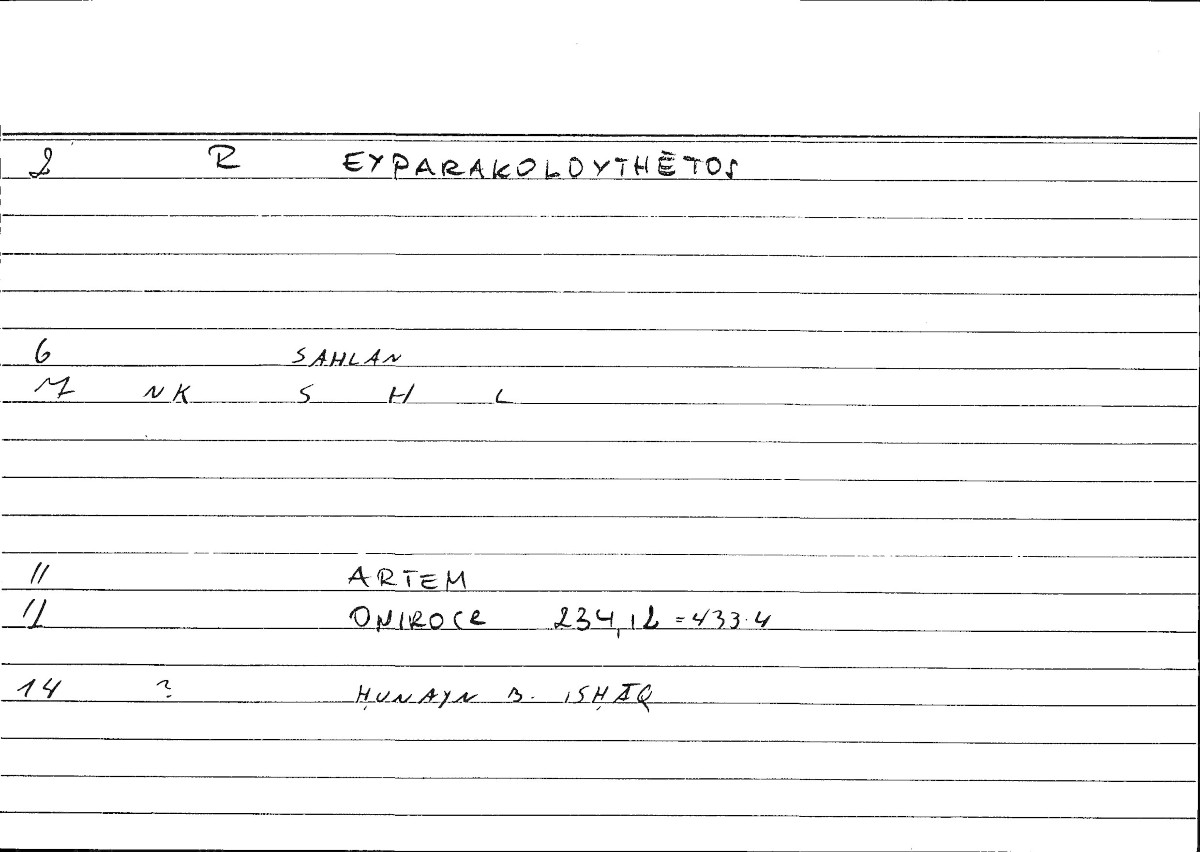 2 R EYPARAKOLOYTHĒTOS
6 SAHLAN
7 NK S H L
11 ARTEM
12 ONIROCR 234,12 =433.4
14 ? ḤUNAYN B. ISḤĀQ